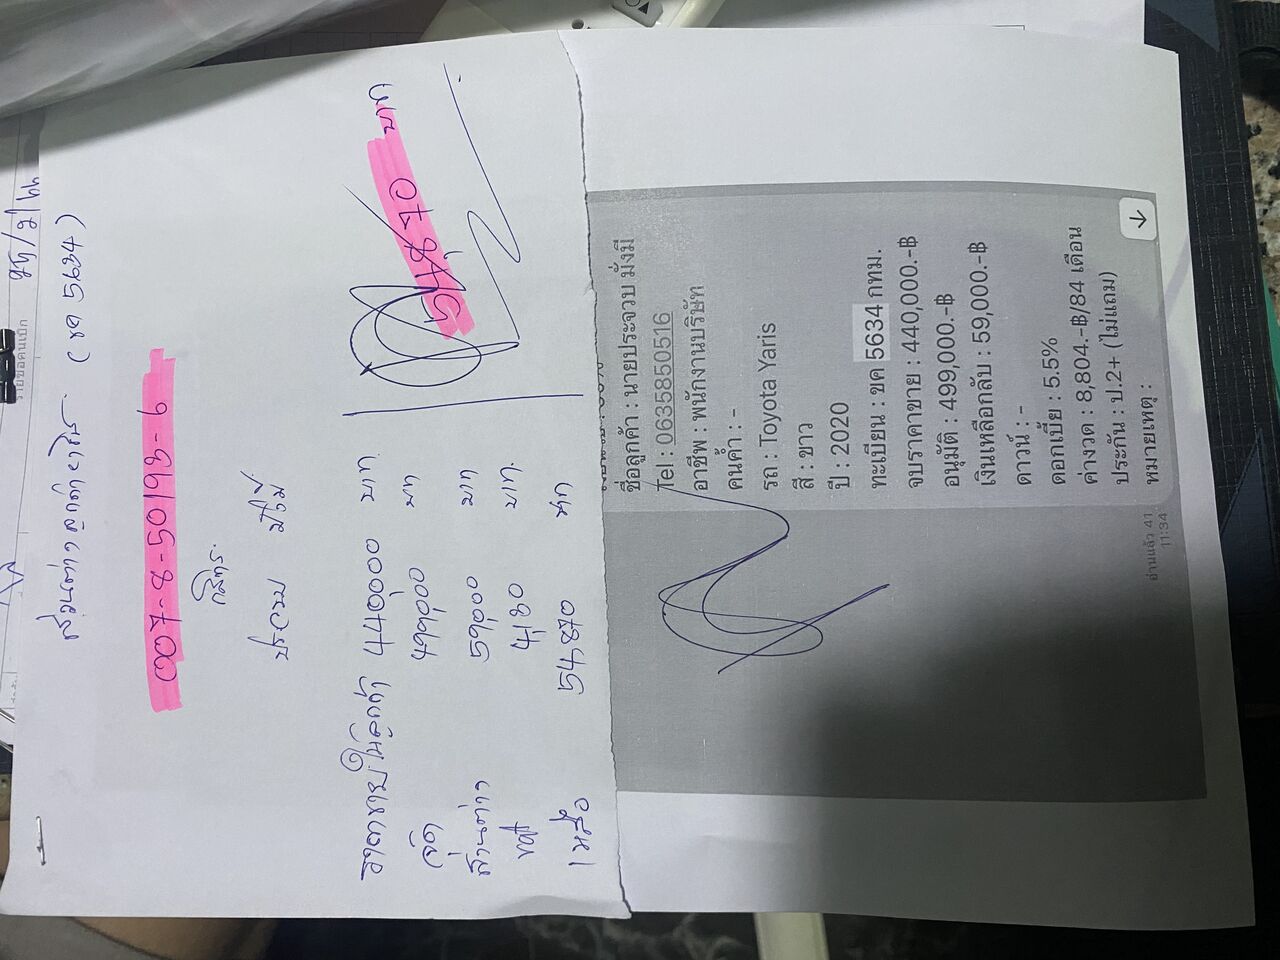 25/2/66
ส่วนต่างลูกค้า (ขค 5634)
007-8-50198-6
กสิกร
ประจวบ มั่งมี
ราคาขายให้ลูกค้า 440000 บาท
จัด 499,000 บาท
ส่วนต่าง 59,000 บาท
vat 4,130 บาท
เหลือ 54,870 บาท
54,870 บาท
ชื่อลูกค้า : นายประจวบ มั่งมี
Tel : 0635850516
อาชีพ : พนักงานบริษัท
คนค้ำ : -
รถ : Toyota Yaris
สี : ขาว
ปี : 2020
ทะเบียน : ขค 5634 กทม.
จบราคาขาย : 440,000.-฿
อนุมัติ : 499,000.-฿
เงินเหลือกลับ : 59,000.-฿
ดาวน์ : -
ดอกเบี้ย : 5.5%
ค่างวด : 8,804.-฿/84 เดือน
ประกัน : ป.2+ (ไม่แถม)
หมายเหตุ :
อ่านแล้ว 41
11:34